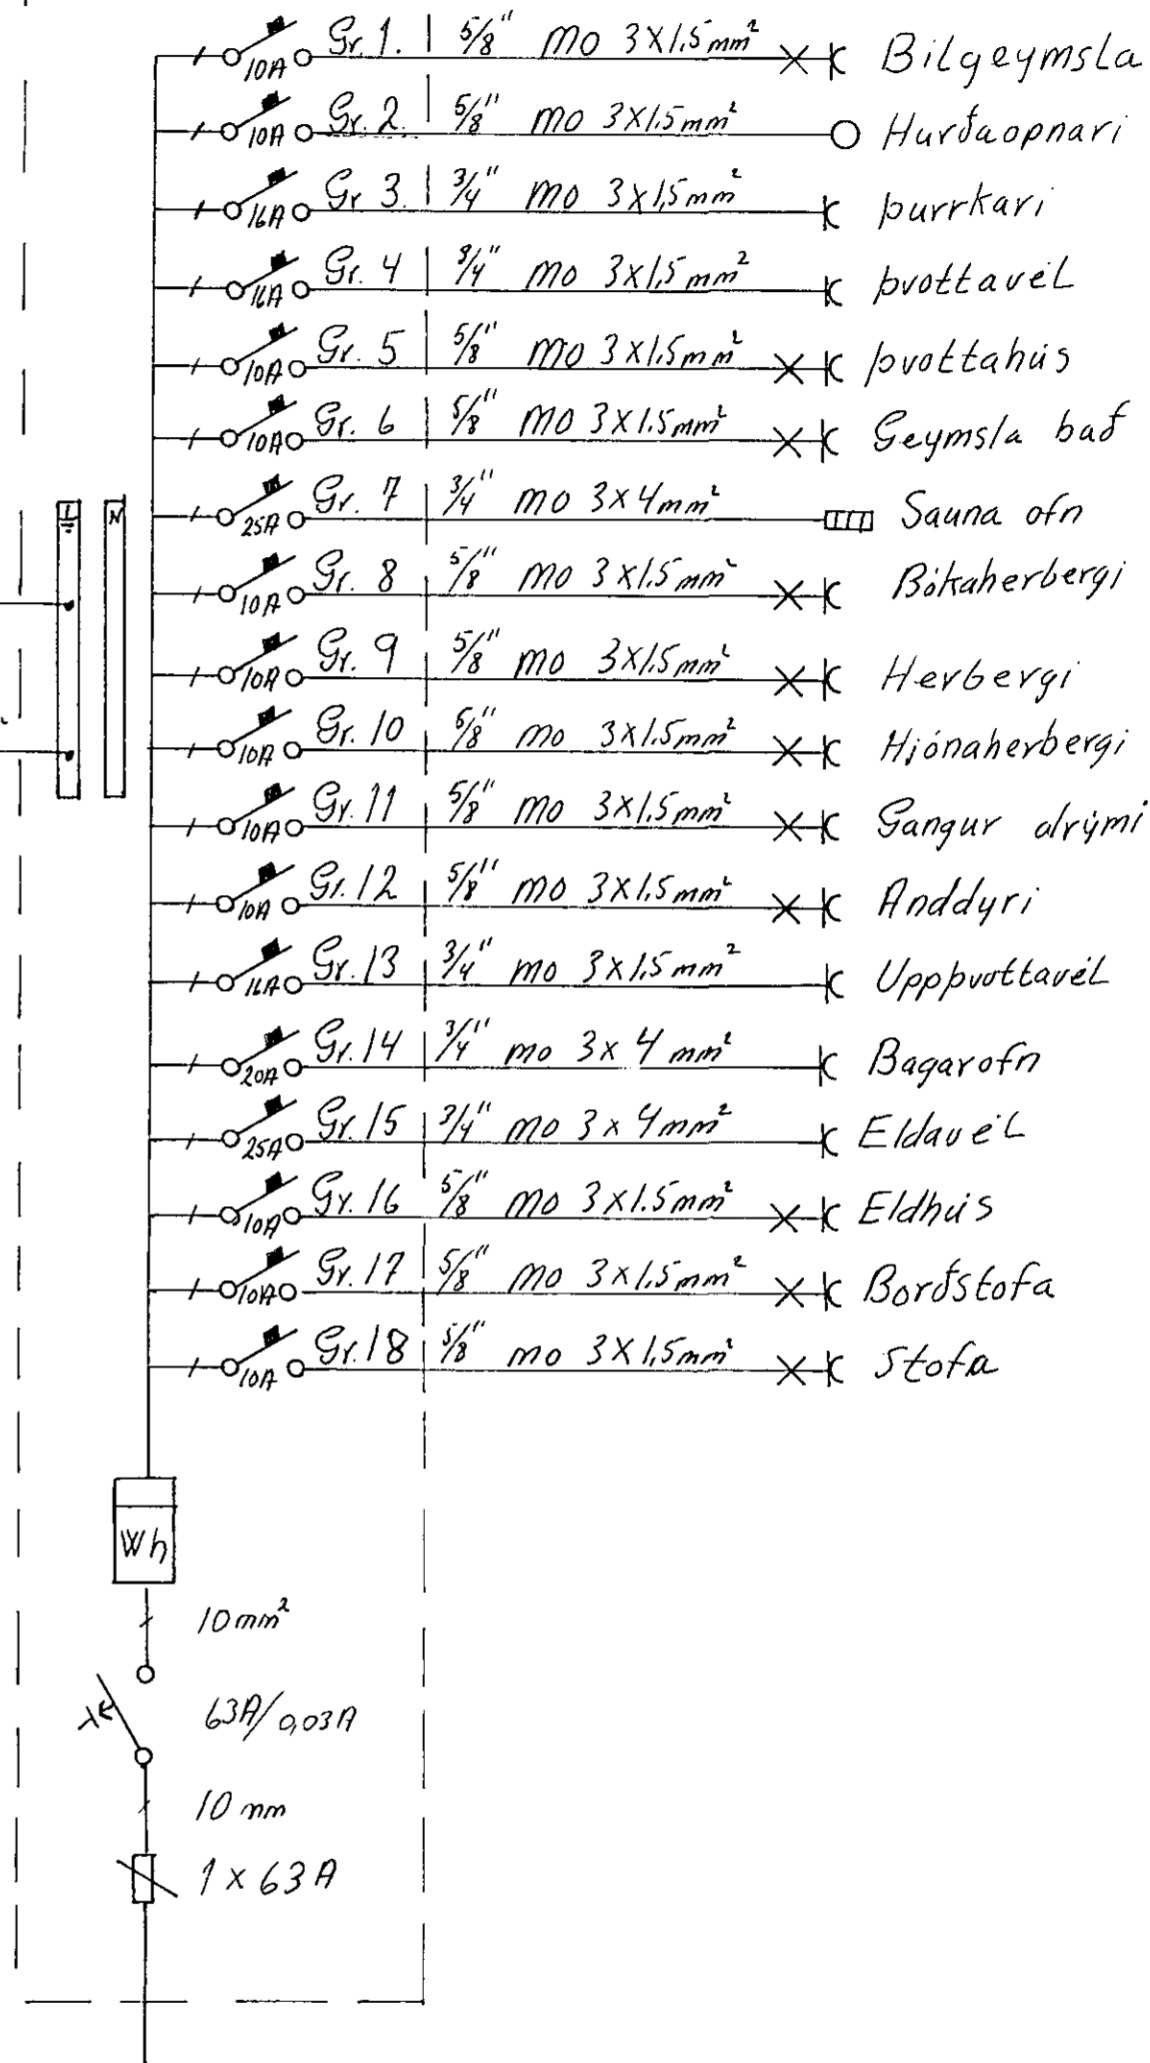 10A Gr. 1. 5/8" mo 3x1,5mm² Bilgeymsla
10A Gr. 2. 5/8" mo 3x1,5mm² Hurðaopnari
16A Gr 3. 3/4" mo 3x1,5mm² þurrkari
16A Gr. 4 3/4" mo 3x1,5mm² þvottavél
10A Gr. 5 5/8" mo 3x1,5mm² þvottahús
10A Gr. 6 5/8" mo 3x1.5mm² Geymsla bað
25A Gr. 7 3/4" mo 3x4mm² Sauna ofn
10A Gr. 8 5/8" mo 3x1.5mm² Bókaherbergi
10A Gr. 9 5/8" mo 3x1.5mm² Herbergi
10A Gr. 10 5/8" mo 3x1.5mm² Hjónaherbergi
10A Gr. 11 5/8" mo 3x1.5mm² Gangur alrými
10A Gr. 12 5/8" mo 3x1.5mm² Anddyri
16A Gr. 13 3/4" mo 3x1.5mm² Uppþvottavél
20A Gr. 14 3/4" mo 3x4mm² Bagarofn
25A Gr. 15 3/4" mo 3x4mm² Eldavél
10A Gr. 16 5/8" mo 3x1.5mm² Eldhús
10A Gr. 17 5/8" mo 3x1,5mm² Borðstofa
10A Gr. 18 5/8" mo 3x1,5mm² Stofa
N
Wh
10mm²
63A/0,03A
10mm
1x63A